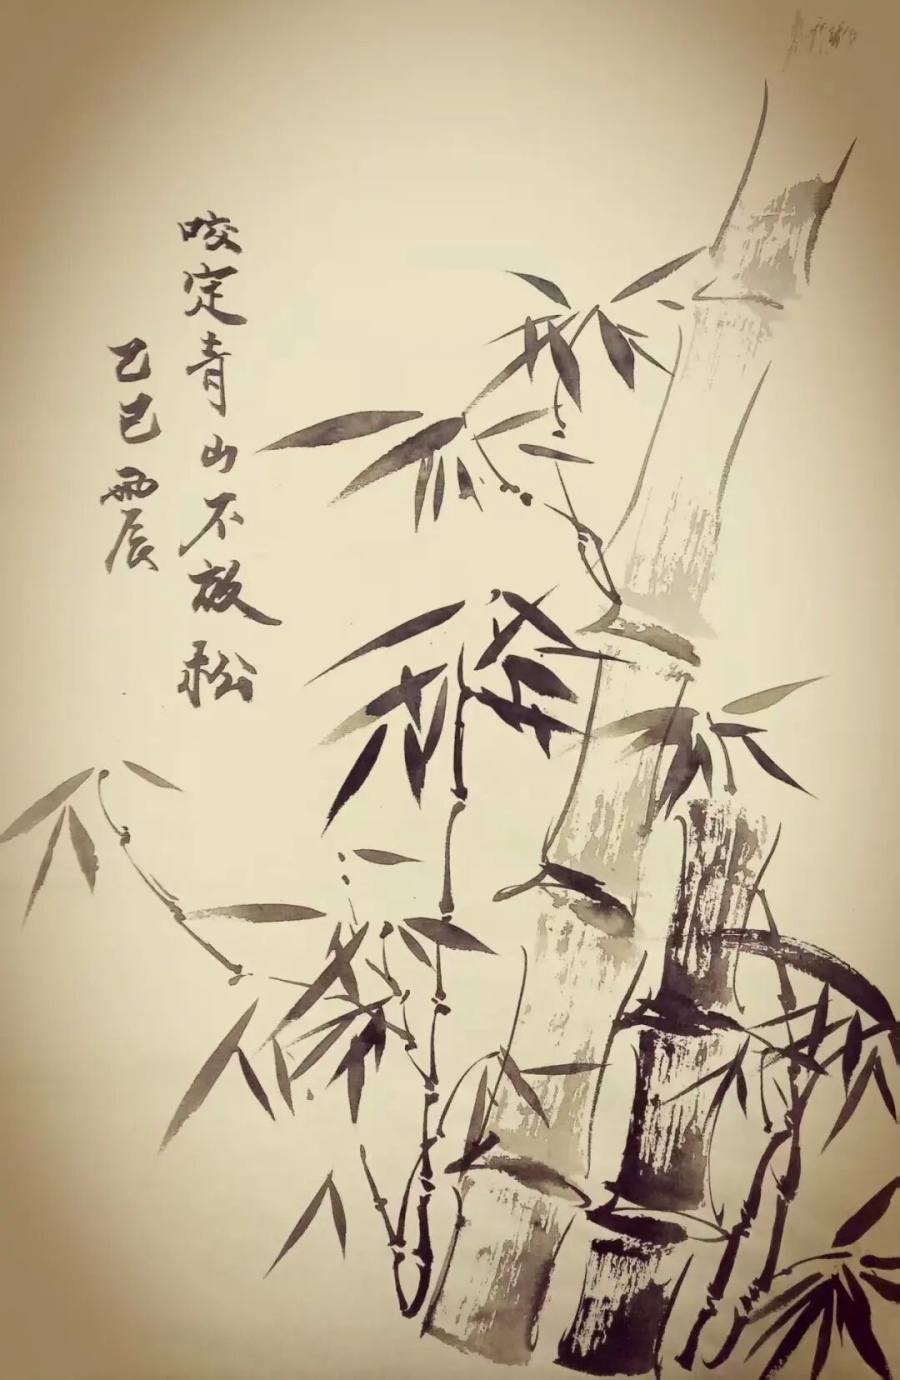 咬定青山不放松
乙巳震